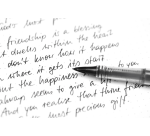 must
friendship is a blessing
dwells within the heart
don't know how it happens
where it gets its start
but the happiness to you
always seems to give a
And you realize that those friends
most precious gift